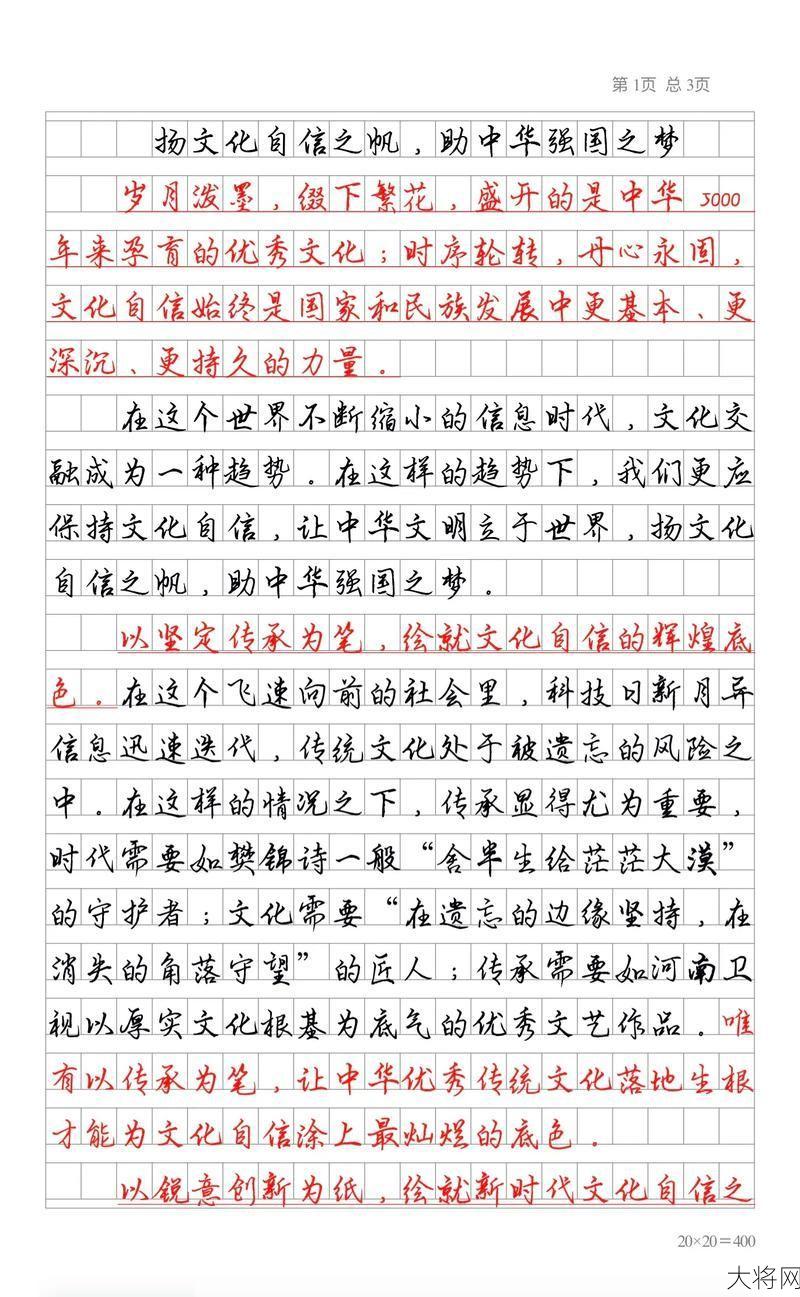 第1页 总3页
扬文化自信之帆，助中华强国之梦
岁月泼墨，缀下繁花，盛开的是中华5000
年来孕育的优秀文化；时序轮转，丹心永固，
文化自信始终是国家和民族发展中更基本、更
深沉、更持久的力量。
在这个世界不断缩小的信息时代，文化交
融成为一种趋势。在这样的趋势下，我们更应
保持文化自信，让中华文明立于世界，扬文化
自信之帆，助中华强国之梦。
以坚定传承为笔，绘就文化自信的辉煌底
色。在这个飞速向前的社会里，科技日新月异
信息迅速迭代，传统文化处于被遗忘的风险之
中。在这样的情况之下，传承显得尤为重要，
时代需要如樊锦诗一般“舍半生给茫茫大漠”
的守护者；文化需要“在遗忘的边缘坚持，在
消失的角落守望”的匠人；传承需要如河南卫
视以厚实文化根基为底气的优秀文艺作品。唯
有以传承为笔，让中华优秀传统文化落地生根
才能为文化自信涂上最灿烂的底色。
以锐意创新为纸，绘就新时代文化自信之
20×20=400
大将网